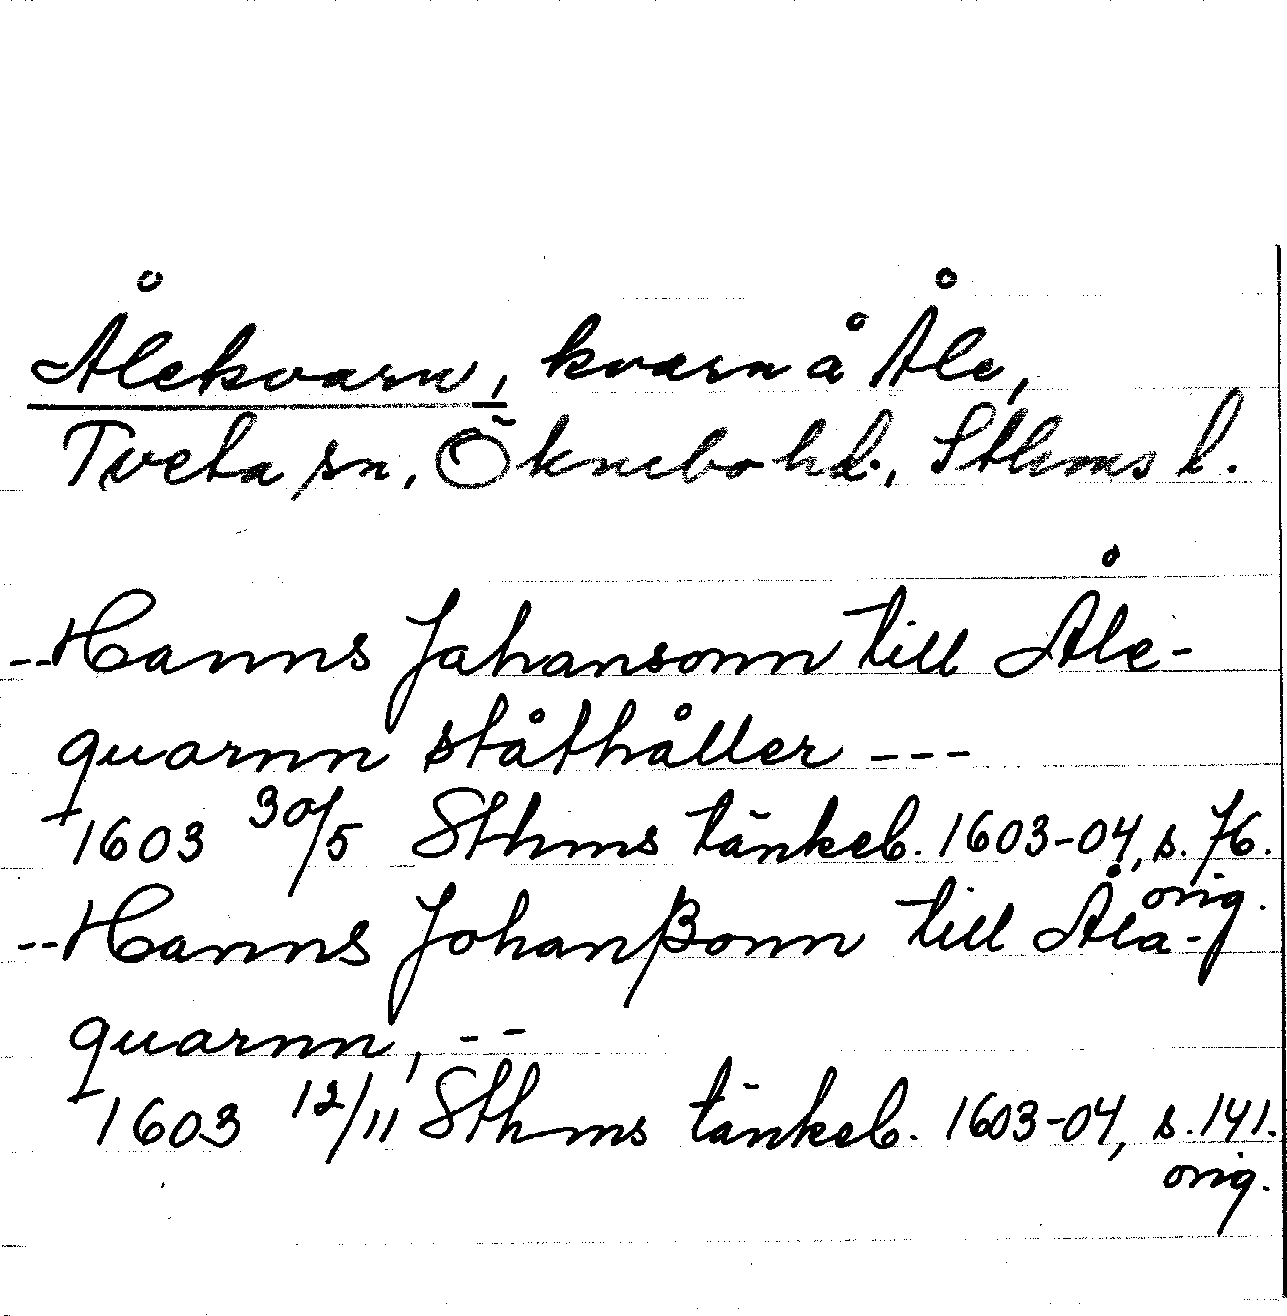 Ålekvarn, kvarn å Åle,
Tveta sn, Öknebo hd., Sthms l.
--Hanns Johansonn till Åle-
quarnn ståthåller ---
1603 30/5 Sthms tänkeb. 1603-04, s. 76.
orig.
--Hanns Johanßonn till Åla-
quarnn, --
1603 12/11 Sthms tänkeb. 1603-04, s. 141.
orig.